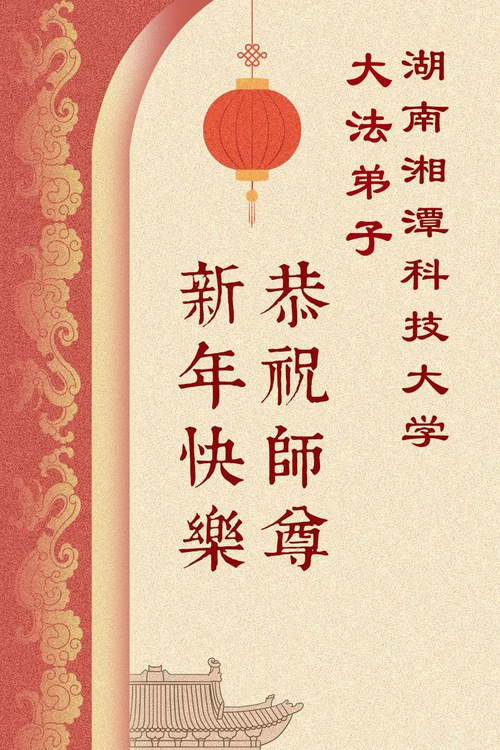 湖南湘潭科技大学
大法弟子
恭祝師尊
新年快樂